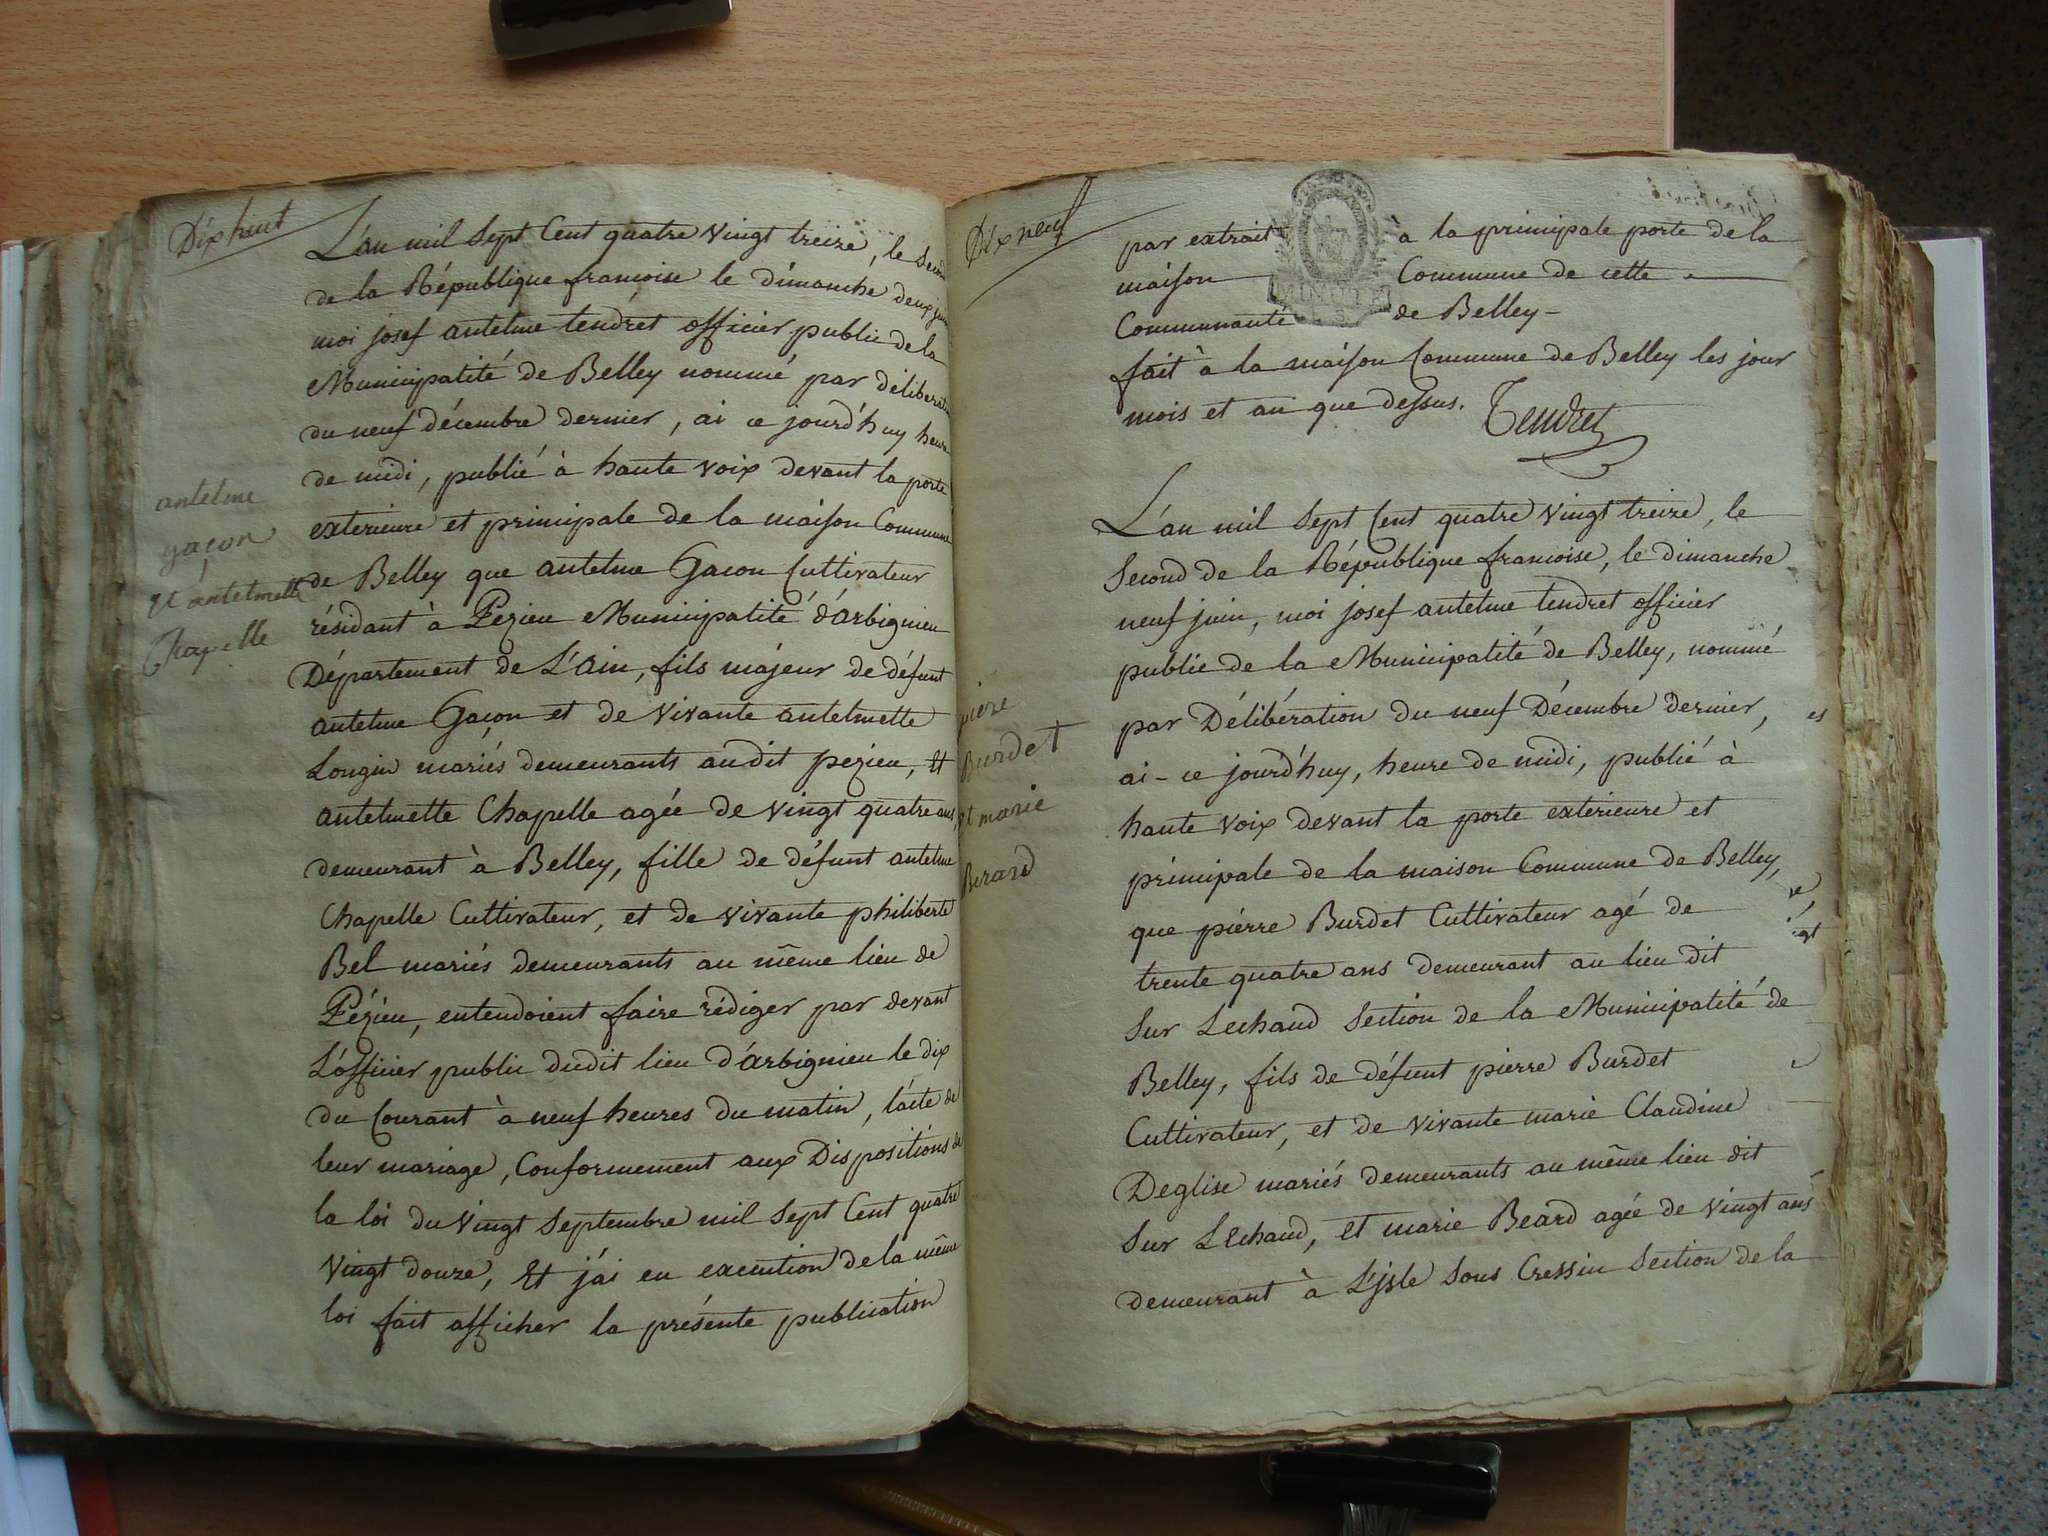 Dix huit
L'an mil sept Cent quatre vingt treize, le second
de la République françoise le dimanche deux juin
moi josef antelme tendret officier public de la
Municipalité de Belley nommé par déliberation
du neuf décembre dernier, ai ce jourd'huy heure
de midi, publié à haute voix devant la porte
exterieure et principale de la maison Commune
de Belley que antelme Gaçon Cultivateur
résidant à Pezieu Municipalité d'arbignieu
Département de L'ain, fils majeur de défunt
antelme Gaçon et de vivante antelmette
Longin mariés demeurants audit pezieu, Et
antelmette Chapelle agée de vingt quatre ans,
demeurant à Belley, fille de défunt antelme
Chapelle Cultivateur, et de vivante philiberte
Bel mariés demeurants au même lieu de
Pézieu, entendoient faire rédiger par devant
L'officier public dudit lieu d'arbignieu le dix
du Courant à neuf heures du matin, l'acte de
leur mariage, Conformement aux Dispositions de
la loi du vingt septembre mil sept Cent quatre
vingt douze, Et j'ai en execution de la même
loi fait afficher la présente publication
antelme
gaçon
et antelmette
Chapelle
Dix neuf
par extrait à la principale porte de la
maison Commune de cette
Communauté de Belley -
MINUTE
fait à la maison Commune de Belley les jour
mois et an que dessus. Tendret
L'an mil sept Cent quatre vingt treize, le
second de la République françoise, le dimanche
neuf juin, moi josef antelme tendret officier
public de la Municipalité de Belley, nommé
par Délibération du neuf Décembre dernier,
ai - ce jourd'huy, heure de midi, publié à
haute voix devant la porte exterieure et
principale de la maison Commune de Belley,
que pierre Burdet Cultivateur agé de
trente quatre ans demeurant au lieu dit
Sur Lechaud Section de la Municipalité de
Belley, fils de défunt pierre Burdet
Cultivateur, et de vivante marie Claudine
Deglise mariés demeurants au même lieu dit
Sur Lechaud, et marie Beard agée de vingt ans
demeurant à L'jsle sous Cressin Section de la
piere
Burdet
et marie